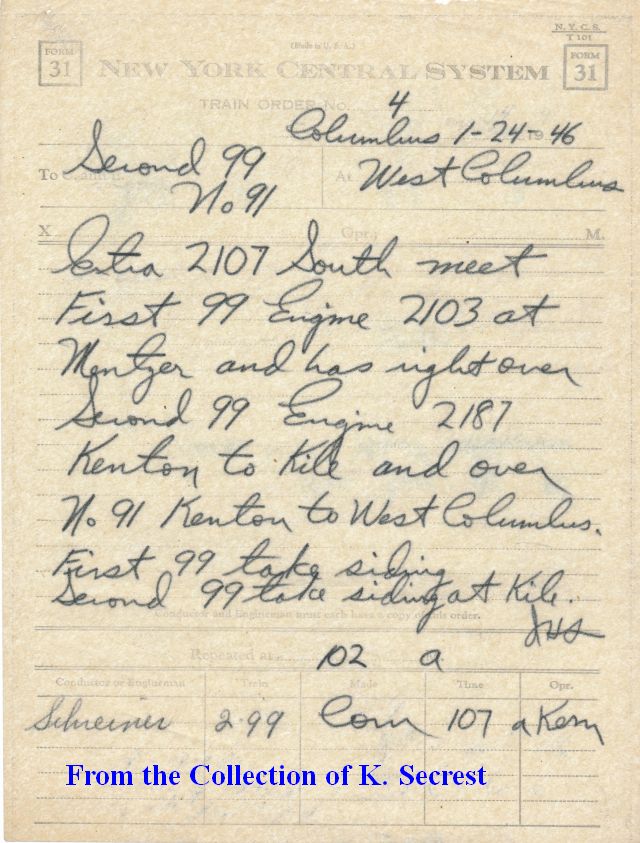 N.Y.C.S.
T 101
(Made in U.S.A.)
FORM 31
NEW YORK CENTRAL SYSTEM
FORM 31
TRAIN ORDER No. 4
Columbus 1-24-1946
To Second 99
No 91
At West Columbus
X Opr.; M.
Extra 2107 South meet
First 99 Engine 2103 at
Mentzer and has right over
Second 99 Engine 2187
Kenton to Kile and over
No 91 Kenton to West Columbus.
First 99 take siding
Second 99 take siding at Kile.
Conductor and Engineman must each have a copy of this order.
JHS
Repeated at 102 a
Conductor or Engineman Train Made Time Opr.
Schreiner 2-99 Com 107 a Kern
From the Collection of K. Secrest